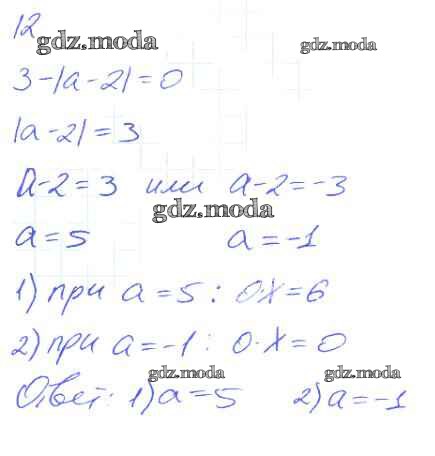 12
gdz.moda gdz.moda
3-|a-2|=0
|a-2|=3
a-2=3 или a-2=-3
gdz.moda
a=5 a=-1
1) при a=5: 0·x=6
2) при a=-1: 0·x=0
gdz.moda gdz.moda
Ответ: 1) a=5 2) a=-1